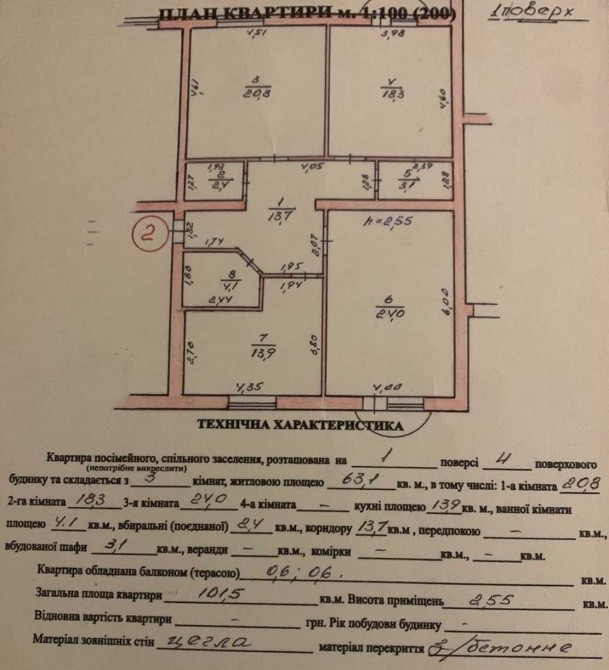 ПЛАН КВАРТИРИ м. 1:100 (200)
1 поверх
4,51
3,98
4,61
3
20,8
4
18,3
4,60
4,05
1,92
2
2,4
1,27
1,28
5
3,1
2,39
1,28
1
13,7
h=2,55
2
1,32
1,74
2,07
1,80
8
4,1
2,44
1,95
1,94
6
24,0
6,00
7
13,9
2,70
3,80
4,35
4,00
ТЕХНІЧНА ХАРАКТЕРИСТИКА
Квартира посімейного, спільного заселення, розташована на 1 поверсі 4 поверхового
(непотрібне викреслити)
будинку та складається з 3 кімнат, житловою площею 63,1 кв. м., в тому числі: 1-а кімната 20,8
2-га кімната 18,3 3-я кімната 24,0 4-а кімната – кухні площею 13,9 кв. м., ванної кімнати
площею 4.1 кв.м., вбиральні (поєднаної) 2,4 кв.м., коридору 13,7 кв.м , передпокою – кв.м.,
вбудованої шафи 3,1 кв.м., веранди – кв.м., комірки – кв.м., – кв.м.
Квартира обладнана балконом (терасою) 0,6; 0,6. кв.м.
Загальна площа квартири 101,5 кв.м. Висота приміщень 2,55 кв.м.
Відновна вартість квартири – грн. Рік побудови будинку -
Матеріал зовнішніх стін цегла матеріал перекриття з/бетонне